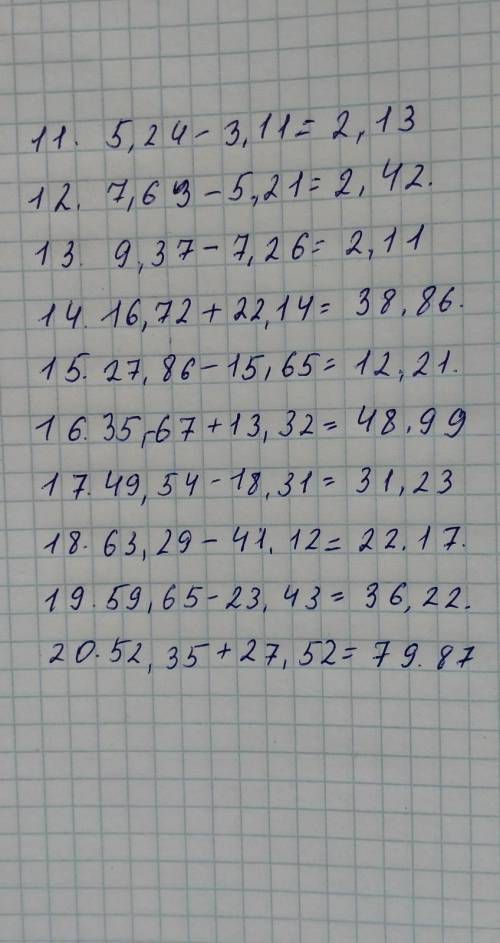 11. 5,24 - 3,11 = 2,13
12. 7,63 - 5,21 = 2,42.
13. 9,37 - 7,26 = 2,11
14. 16,72 + 22,14 = 38,86.
15. 27,86 - 15,65 = 12,21.
16. 35,67 + 13,32 = 48.99
17. 49,54 - 18,31 = 31,23
18. 63,29 - 41.12 = 22.17.
19. 59,65 - 23,43 = 36,22.
20. 52,35 + 27,52 = 79.87